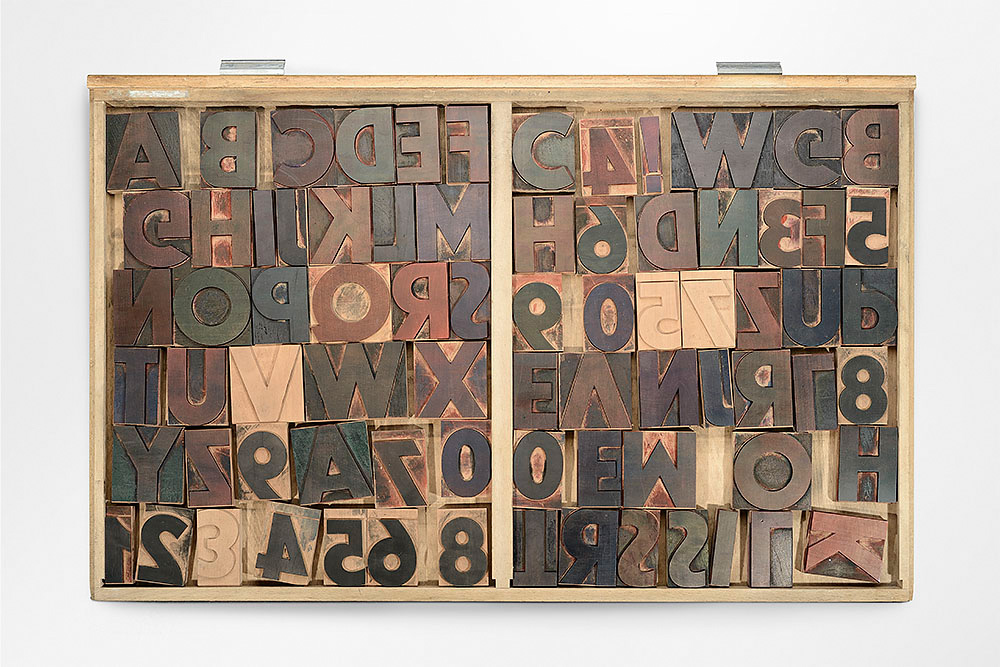 A B C D E F
G H I J K L M
N O P O R S
T U V W X
Y Z 9 A Z 0
1 2 3 4 5 6 8
C 4 ! W G B
H 6 D N E F 5
9 0 5 7 Z U
E V N J R L 8
0 E M O H
T R S S I I K